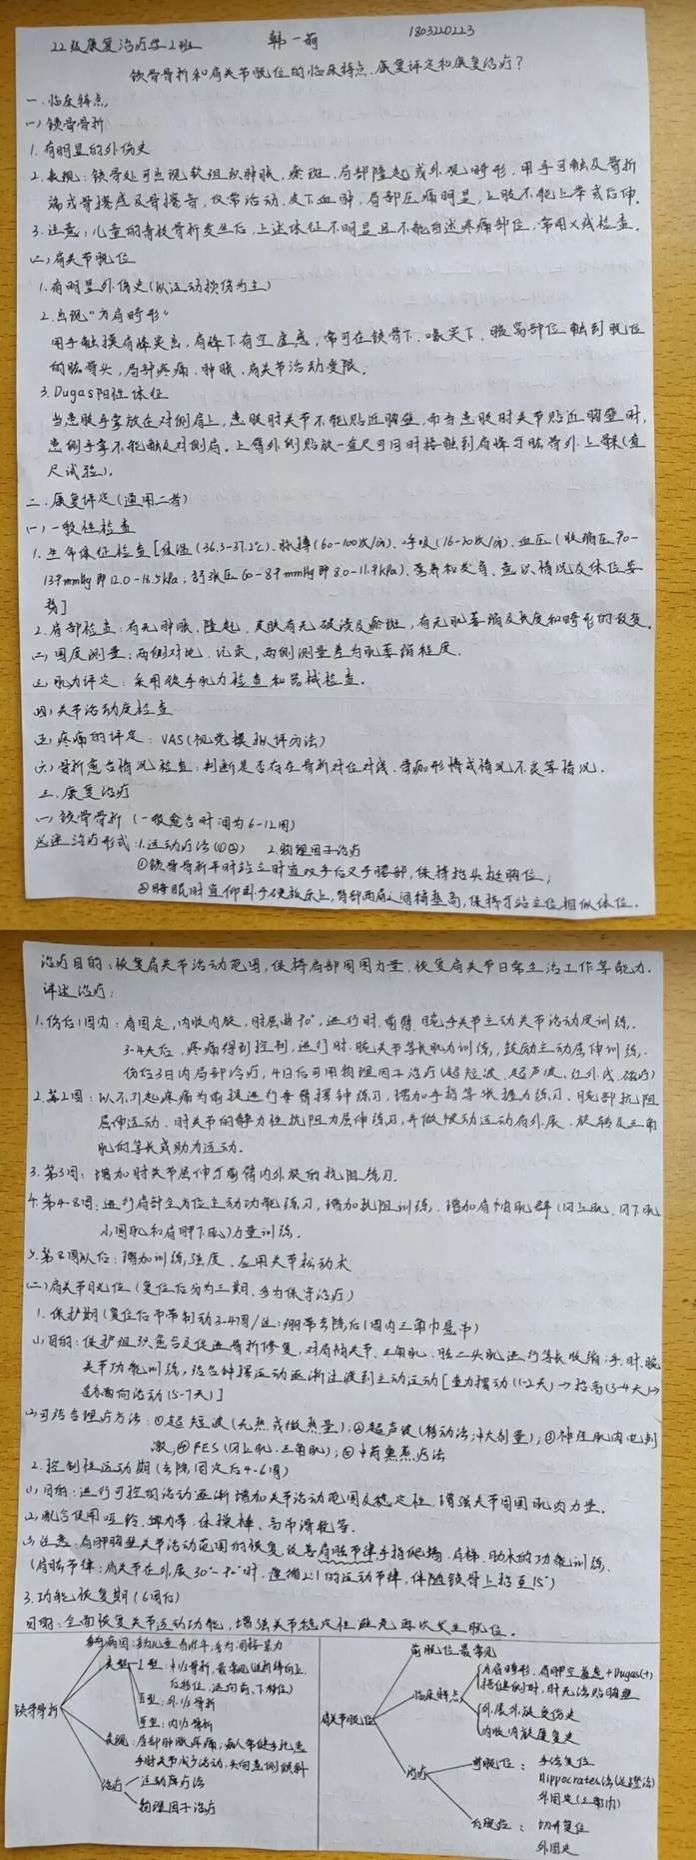 22级康复治疗学2班 韩一菊 1803220223
锁骨骨折和肩关节脱位的临床特点、康复评定和康复治疗?
一、临床特点
(一)锁骨骨折
1.有明显的外伤史
2.表现:锁骨处可出现软组织肿胀、瘀斑、局部隆起或外观畸形,用手可触及骨折
端或骨擦感及骨擦音,仅常活动,皮下血肿,局部压痛明显,上肢不能上举或后伸.
3.注意:儿童的青枝骨折发生后,上述体征不明显且不能自述疼痛部位,常用X线检查.
(二)肩关节脱位
1.有明显外伤史(以运动损伤为主)
2.出现"方肩畸形"
用手触摸肩峰突出,肩峰下有空虚感,常可在锁骨下、喙突下、腋窝部位触到脱位
的肱骨头,局部疼痛、肿胀、肩关节活动受限.
3.Dugas阳性体征
当患肢手掌放在对侧肩上,患肢肘关节不能贴近胸壁,而当患肢肘关节贴近胸壁时,
患侧手掌不能触及对侧肩.上臂外侧贴放一直尺可同时接触到肩峰与肱骨外上髁(直
尺试验).
二、康复评定(适用二者)
(一)一般性检查
1.生命体征检查[体温(36.3-37.2℃)、脉搏(60-100次/分)、呼吸(16-20次/分)、血压(收缩压90-
139mmHg即12.0-18.5kPa,舒张压60-89mmHg即8.0-11.9kPa)、营养和发育、意识情况及体位姿
势]
2.局部检查:有无肿胀、隆起、皮肤有无破溃及瘀斑,有无肌萎缩及长度和畸形的改变.
(二)围度测量:两侧对比、记录,两侧测量差为肌萎缩程度.
(三)肌力评定:采用徒手肌力检查和器械检查.
(四)关节活动度检查
(五)疼痛的评定:VAS(视觉模拟评分法)
(六)骨折愈合情况检查:判断是否存在骨折对位对线、骨痂形成情况不良等情况.
三、康复治疗
(一)锁骨骨折(一般愈合时间为6-12周)
总述治疗形式:1.运动疗法(①②) 2.物理因子治疗
①锁骨骨折平时站立时宜双手后叉于腰部,保持抬头挺胸位;
②睡眠时宜仰卧于硬板床上,背部两肩之间稍垫高,保持与站立位相似体位.
治疗目的:恢复肩关节活动范围,保持肩部周围力量,恢复肩关节日常生活工作等能力.
详述治疗:
1.伤后1周内:肩固定,内收内旋,肘屈曲90°,进行肘、前臂、腕手关节主动关节活动度训练.
3-4天后,疼痛得到控制,进行肘、腕关节等长肌力训练,鼓励主动屈伸训练.
伤后3日内局部冷疗,4日后可用物理因子治疗(超短波、超声波、红外线、磁疗)
2.第2周:以不引起疼痛为前提进行垂臂摆钟练习,增加手指等张握力练习、腕部抗阻
屈伸运动、肘关节的静力性抗阻力屈伸练习,并做被动运动肩外展、旋转及三角
肌的等长或助力运动.
3.第3周:增加肘关节屈伸与前臂内外旋的抗阻练习.
4.第4-8周:进行肩部全方位主动功能练习,增加抗阻训练,增加肩袖肌群(冈上肌、冈下肌
小圆肌和肩胛下肌)力量训练.
5.第8周以后:增加训练强度、应用关节松动术
(二)肩关节脱位(复位后分为三期,多为保守治疗)
1.保护期(复位后吊带制动3-4周/注:绷带去除后1周内三角巾悬吊)
(1)目的:保护组织愈合及促进骨折修复,对肩袖关节、三角肌、肱二头肌进行等长收缩;手、肘、腕
关节功能训练,结合钟摆运动逐渐过渡到主动运动[重力摆动(1-2天)→抬高(3-4天)→
各方向活动(5-7天)]
(2)可结合理疗方法:①超短波(无热或微热量);②超声波(移动法;中大剂量);③神经肌肉电刺
激,④FES(冈上肌、三角肌);⑤中药熏蒸疗法
2.控制性运动期(去除固定后4-6周)
(1)目的:进行可控的活动逐渐增加关节活动范围及稳定性,增强关节周围肌肉力量.
(2)配合使用哑铃、弹力带、体操棒、高吊滑轮等.
(3)注意:肩胛胸壁关节活动范围的恢复,改善肩肱节律手指爬墙、肩梯、肋木的功能训练.
(肩肱节律:肩关节在外展30°-90°时,遵循2:1的运动节律,伴随锁骨上抬至15°)
3.功能恢复期(6周后)
目的:全面恢复关节运动功能,增强关节稳定性避免再次发生脱位.
锁骨骨折
病因:多为儿童、青壮年,多为间接暴力
类型
Ⅰ型:中1/3骨折,最常见(近折端向上、
后移位,远向前、下移位)
Ⅱ型:外1/3骨折
Ⅲ型:内1/3骨折
表现:局部肿胀、疼痛;病人常健手托患
手肘关节减少活动,头向患侧倾斜
治疗
运动库疗法
物理因子治疗
肩关节脱位
前脱位最常见
临床特点
方肩畸形、肩胛空盂感+Dugas(+)
搭健侧时,肘无法贴胸壁
外展外旋受伤史
治疗
前脱位:手法复位
Hippocrates法(足蹬法)
外固定(三角巾)
后脱位:切开复位
外固定